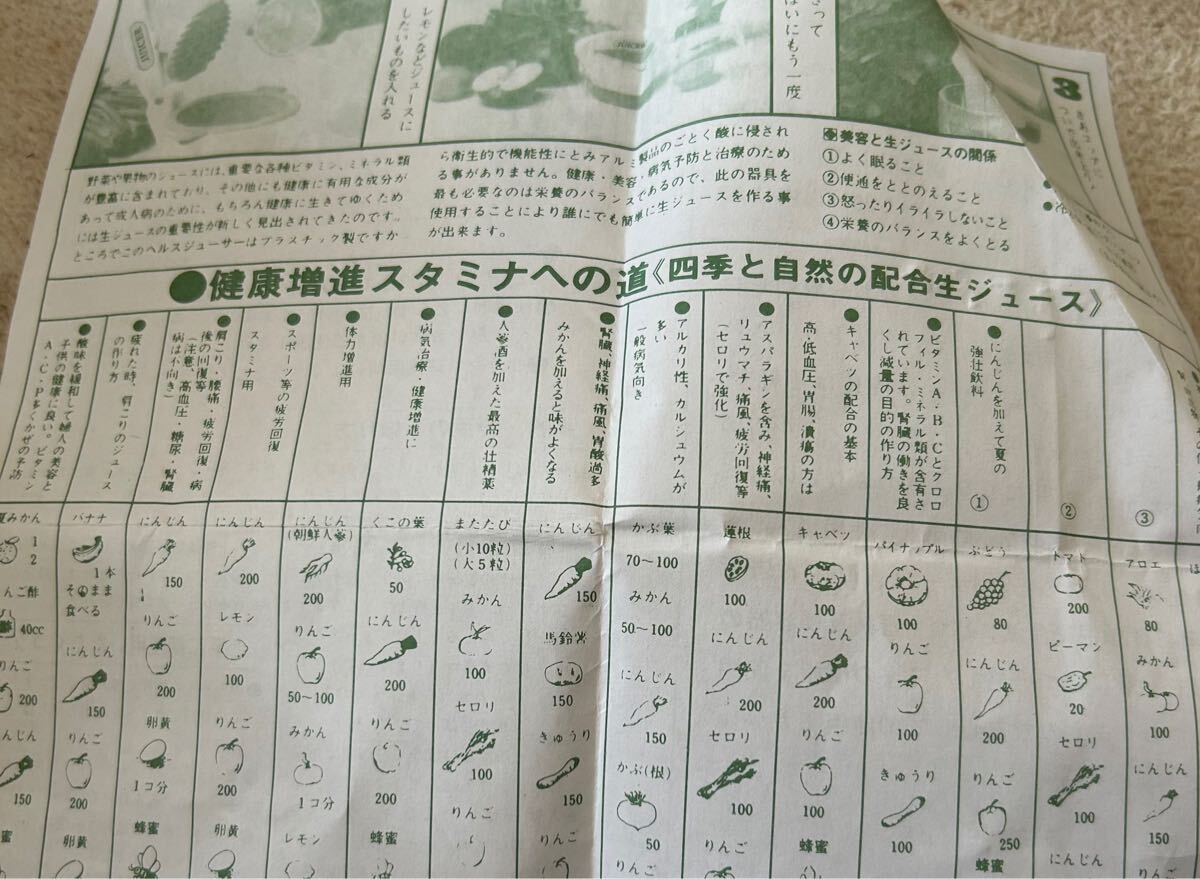 JUICER
レモンなどジュースに
したいものを入れる
JUICER
もう一度
3
野菜や果物のジュースには、重要な各種ビタミン、ミネラル類
が豊富に含まれており、その他にも健康に有用な成分が
あって成人病のために、もちろん健康に生きてゆくため
には生ジュースの重要性が新しく見出されてきたのです。
ところでこのヘルスジューサーはプラスチック製ですか
ら衛生的で機能性にとみアルミ製品のごとく酸に侵され
る事がありません。健康・美容・病気予防と治療のため
最も必要なのは栄養のバランスであるので、此の器具を
使用することにより誰にでも簡単に生ジュースを作る事
が出来ます。
美容と生ジュースの関係
①よく眠ること
②便通をととのえること
③怒ったりイライラしないこと
④栄養のバランスをよくとる
●健康増進スタミナへの道《四季と自然の配合生ジュース》
③
②
●にんじんを加えて夏の
強壮飲料
①
●ビタミンA・B・Cとクロロ
フィル・ミネラル類が含有さ
れています。腎臓の働きを良
くし減量の目的の作り方
●キャベツの配合の基本
高・低血圧、胃腸、潰瘍の方は
●アスパラギンを含み、神経痛、
リュウマチ、痛風、疲労回復等
(セロリで強化)
●アルカリ性、カルシュウムが
多い
一般病気向き
●腎臓、神経痛、痛風、胃酸過多
みかんを加えると味がよくなる
●人参酒を加えた最高の仕精薬
●病気治療、健康増進に
●体力増進用
●スポーツ等の疲労回復
スタミナ用
●肩こり・腰痛・疲労回復・病
後の回復等
(注意、高血圧・糖尿・腎臓
病は不向き)
●疲れた時、肩こりのジュース
の作り方
●酸味を緩和して婦人の美容と
子供の健康に良い。ビタミン
A・C・P多くかぜの予防
アロエ
80
みかん
100
にんじん
150
りんご
トマト
200
ピーマン
20
セロリ
100
にんじん
ぶどう
80
にんじん
200
りんご
250
蜂蜜
パイナップル
100
りんご
きゅうり
100
キャベツ
100
にんじん
200
りんご
100
蜂蜜
蓮根
100
にんじん
200
セロリ
100
りんご
かぶ葉
70〜100
みかん
50〜100
にんじん
150
かぶ(根)
50
りんご
にんじん
150
馬鈴薯
150
きゅうり
150
りんご
またたび
(小10粒)
(大5粒)
みかん
100
セロリ
100
りんご
くこの葉
50
にんじん
200
りんご
200
蜂蜜
にんじん
(朝鮮人参)
200
りんご
50〜100
みかん
1コ分
レモン
にんじん
200
レモン
100
りんご
200
卵黄
にんじん
150
りんご
200
卵黄
1コ分
蜂蜜
バナナ
1本
そのまま
食べる
にんじん
150
りんご
200
卵黄
夏みかん
1
2
んご酢
40cc
りんご
200
んじん
150
蜂蜜